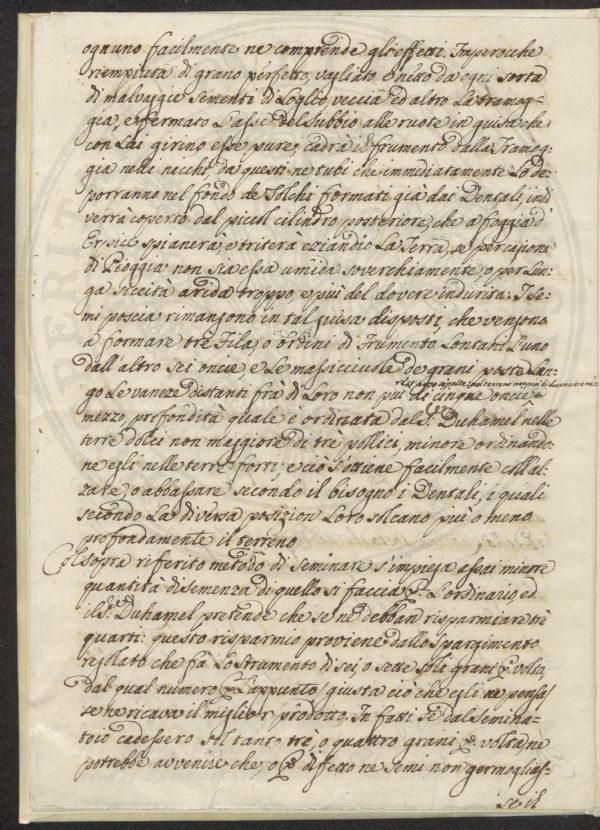 ognuno facilmente ne comprende gli effetti. Imperocche
riempiuta di grano perfetto, vagliato e netto da ogni sorta
di malvaggie sementi di Loglio veccia ed altro La tramog=
gia, e fermato L'asse del subbio alle ruote in guisa che
con Lui girino esse pure, cadrà il frumento dalla Tramog=
gia nelli nicchi, da questi ne tubi che immediatamente Lo de=
porranno nel fondo de Solchi formati già dai Dentali, indi
verrà coperto dal piccol cilindro posteriore, che a foggia d'
Erpice spianerà, e triterà eziandio La Terra, se per cagione
di Pioggia non sia essa umida soverchiamente, o per Lun=
ga siccità arida troppo, e più del dovere indurita: I Se=
mi poscia rimangono in tal guisa disposti, che vengono
a formare tre Fila, o ordini di Frumento Lontani L'uno
dall'altro sei oncie e Le massicciuole de grani poste Lun=
go Le vaneze distanti frà di Loro non più di cinque oncie e
mezzo, profondità quale è ordinata dal S.r Duhamel nelle
terre dolci non maggiore di tre pollici, minore ordinando=
ne egli nelle terre forti; e ciò s'ottiene facilmente coll'al=
zare, o abbassare secondo il bisogno i Dentali, i quali
secondo La diversa posizion Loro solcano più o meno
profondamente il terreno
Col sopra riferito metodo di Seminare s'impiega assai minore
quantità di semenza di quello si faccia p. L'ordinario, ed
il S.r Duhamel pretende che se ne debban risparmiare tre
quarti: questo risparmio proviene dallo Spargimento
regolato che fa Lo Strumento di sei, o sette soli grani p. volta,
dal qual numero p. l'appunto, giusta ciò che egli ne pensa,
se ne ricava il miglior prodotto. In fatti se dal Semina=
toio cadessero soltanto trè, o quattro grani p. volta, ne
potrebbe avvenire che, o p. difetto ne semi non germoglias=
se il